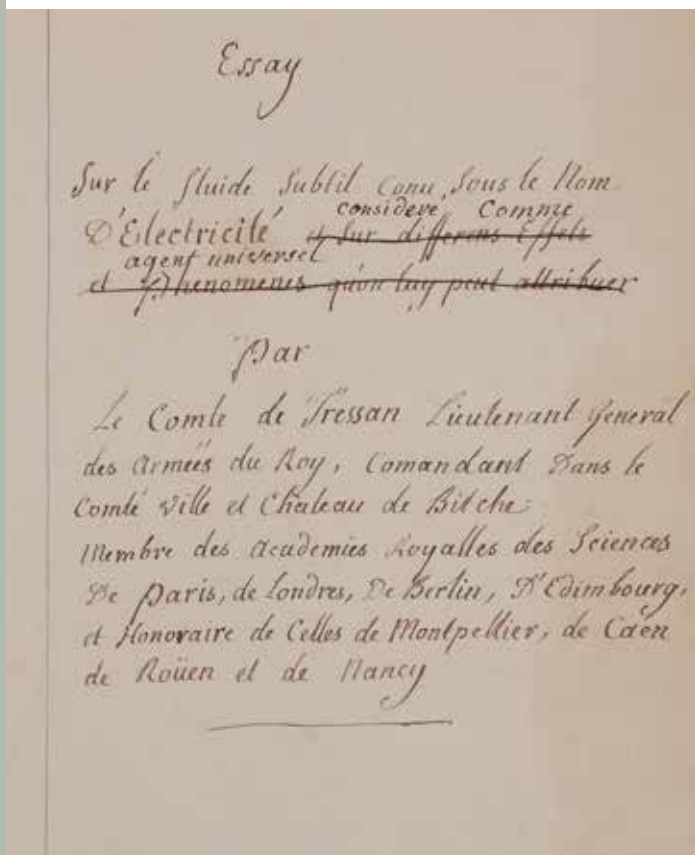 Essay
Sur le fluide Subtil Conu Sous le Nom
consideré Comme
D'Electricité et Sur differens Effets
agent universel
et Phenomenes qu'on luy peut attribuer
Par
Le Comte de Tressan Lieutenant General
des Armées du Roy, Comandant Dans le
Comté Ville et Chateau de Bitche
Membre des Academies Royalles des Sciences
De Paris, de Londres, De Berlin, D'Edimbourg,
et Honoraire de Celles de Montpellier, de Caen
de Roüen et de Nancy